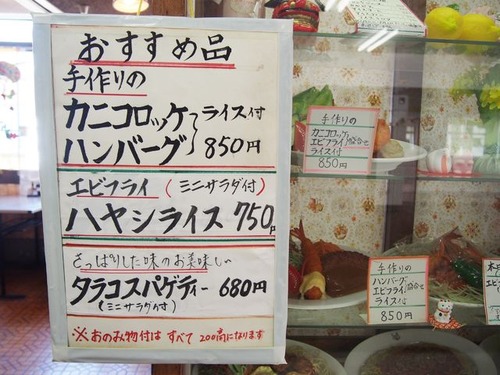 おすすめ品
手作りの
カニコロッケ
ハンバーグ
ライス付
850円
エビフライ (ミニサラダ付)
ハヤシライス 750円
さっぱりした味のお美味しい
タラコスパゲティー 680円
(ミニサラダ付)
※おのみ物付は すべて 200高になります
手作りの
カニコロッケ
エビフライ 盛合せ
ライス付
850円
手作りの
ハンバーグ
エビフライ 盛合せ
ライス付
850円